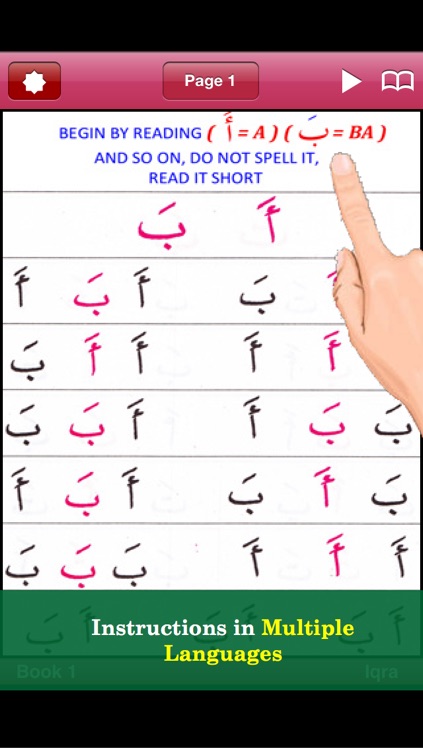 Page 1
BEGIN BY READING ( أَ = A ) ( بَ = BA )
AND SO ON, DO NOT SPELL IT,
READ IT SHORT
أَ بَ
بَ أَ بَ أَ
أَ أَ أَ أَ بَ
بَ بَ أَ أَ بَ بَ
بَ أَ بَ أَ بَ أَ
أَ أَ أَ بَ بَ بَ
Instructions in Multiple
Languages
Book 1 Iqra